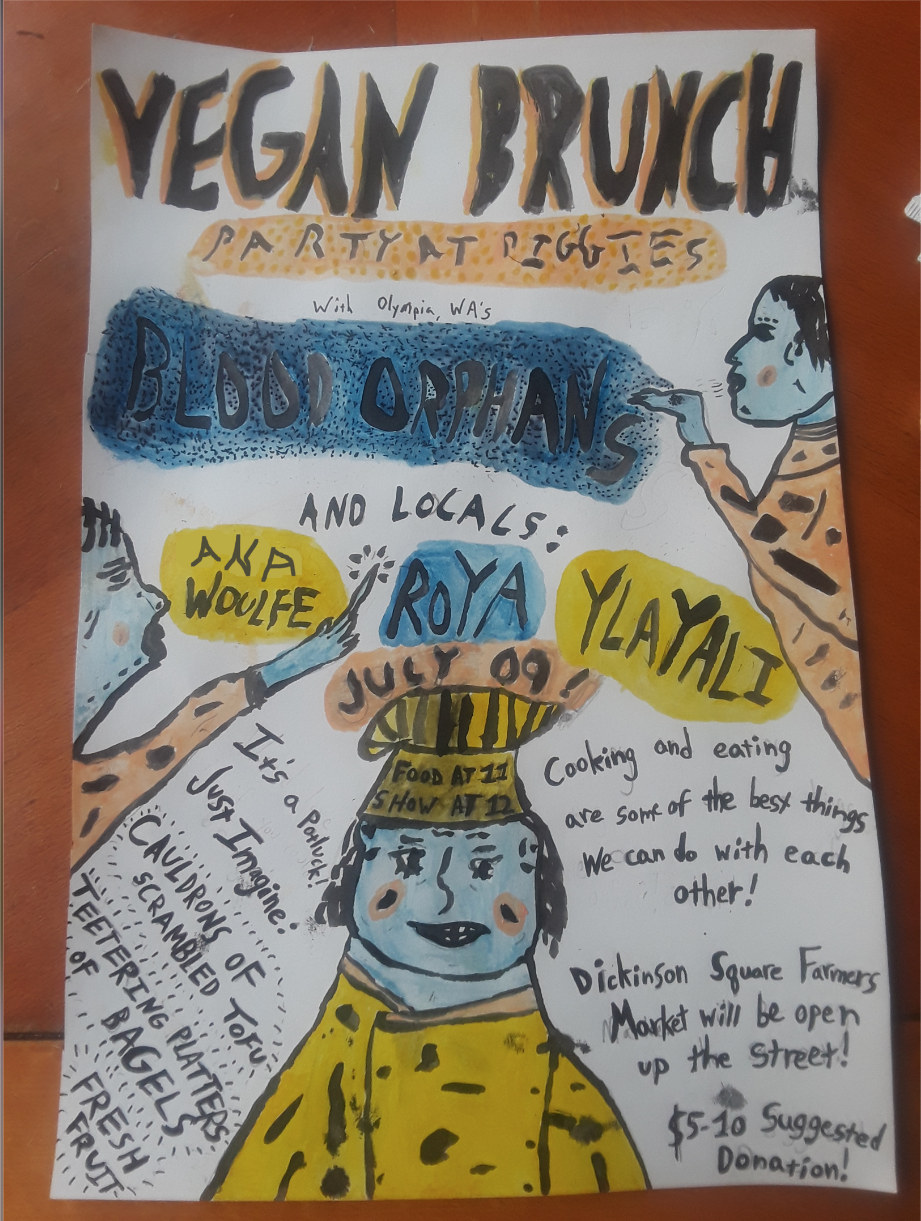 VEGAN BRUNCH
PARTY AT PIGGIES
With Olympia, WA's
BLOOD ORPHANS
AND LOCALS:
ANA
WOOLFE
ROYA
YLAYALI
JULY 09!
FOOD AT 11
SHOW AT 12
It's a Potluck!
Just Imagine..
CAULDRONS OF
SCRAMBLED TOFU
TEETERING PLATTERS
OF BAGELS
FRESH
FRUIT
Cooking and eating
are some of the best things
We can do with each
other!
Dickinson Square Farmers
Market will be open
up the street!
$5-10 Suggested
Donation!